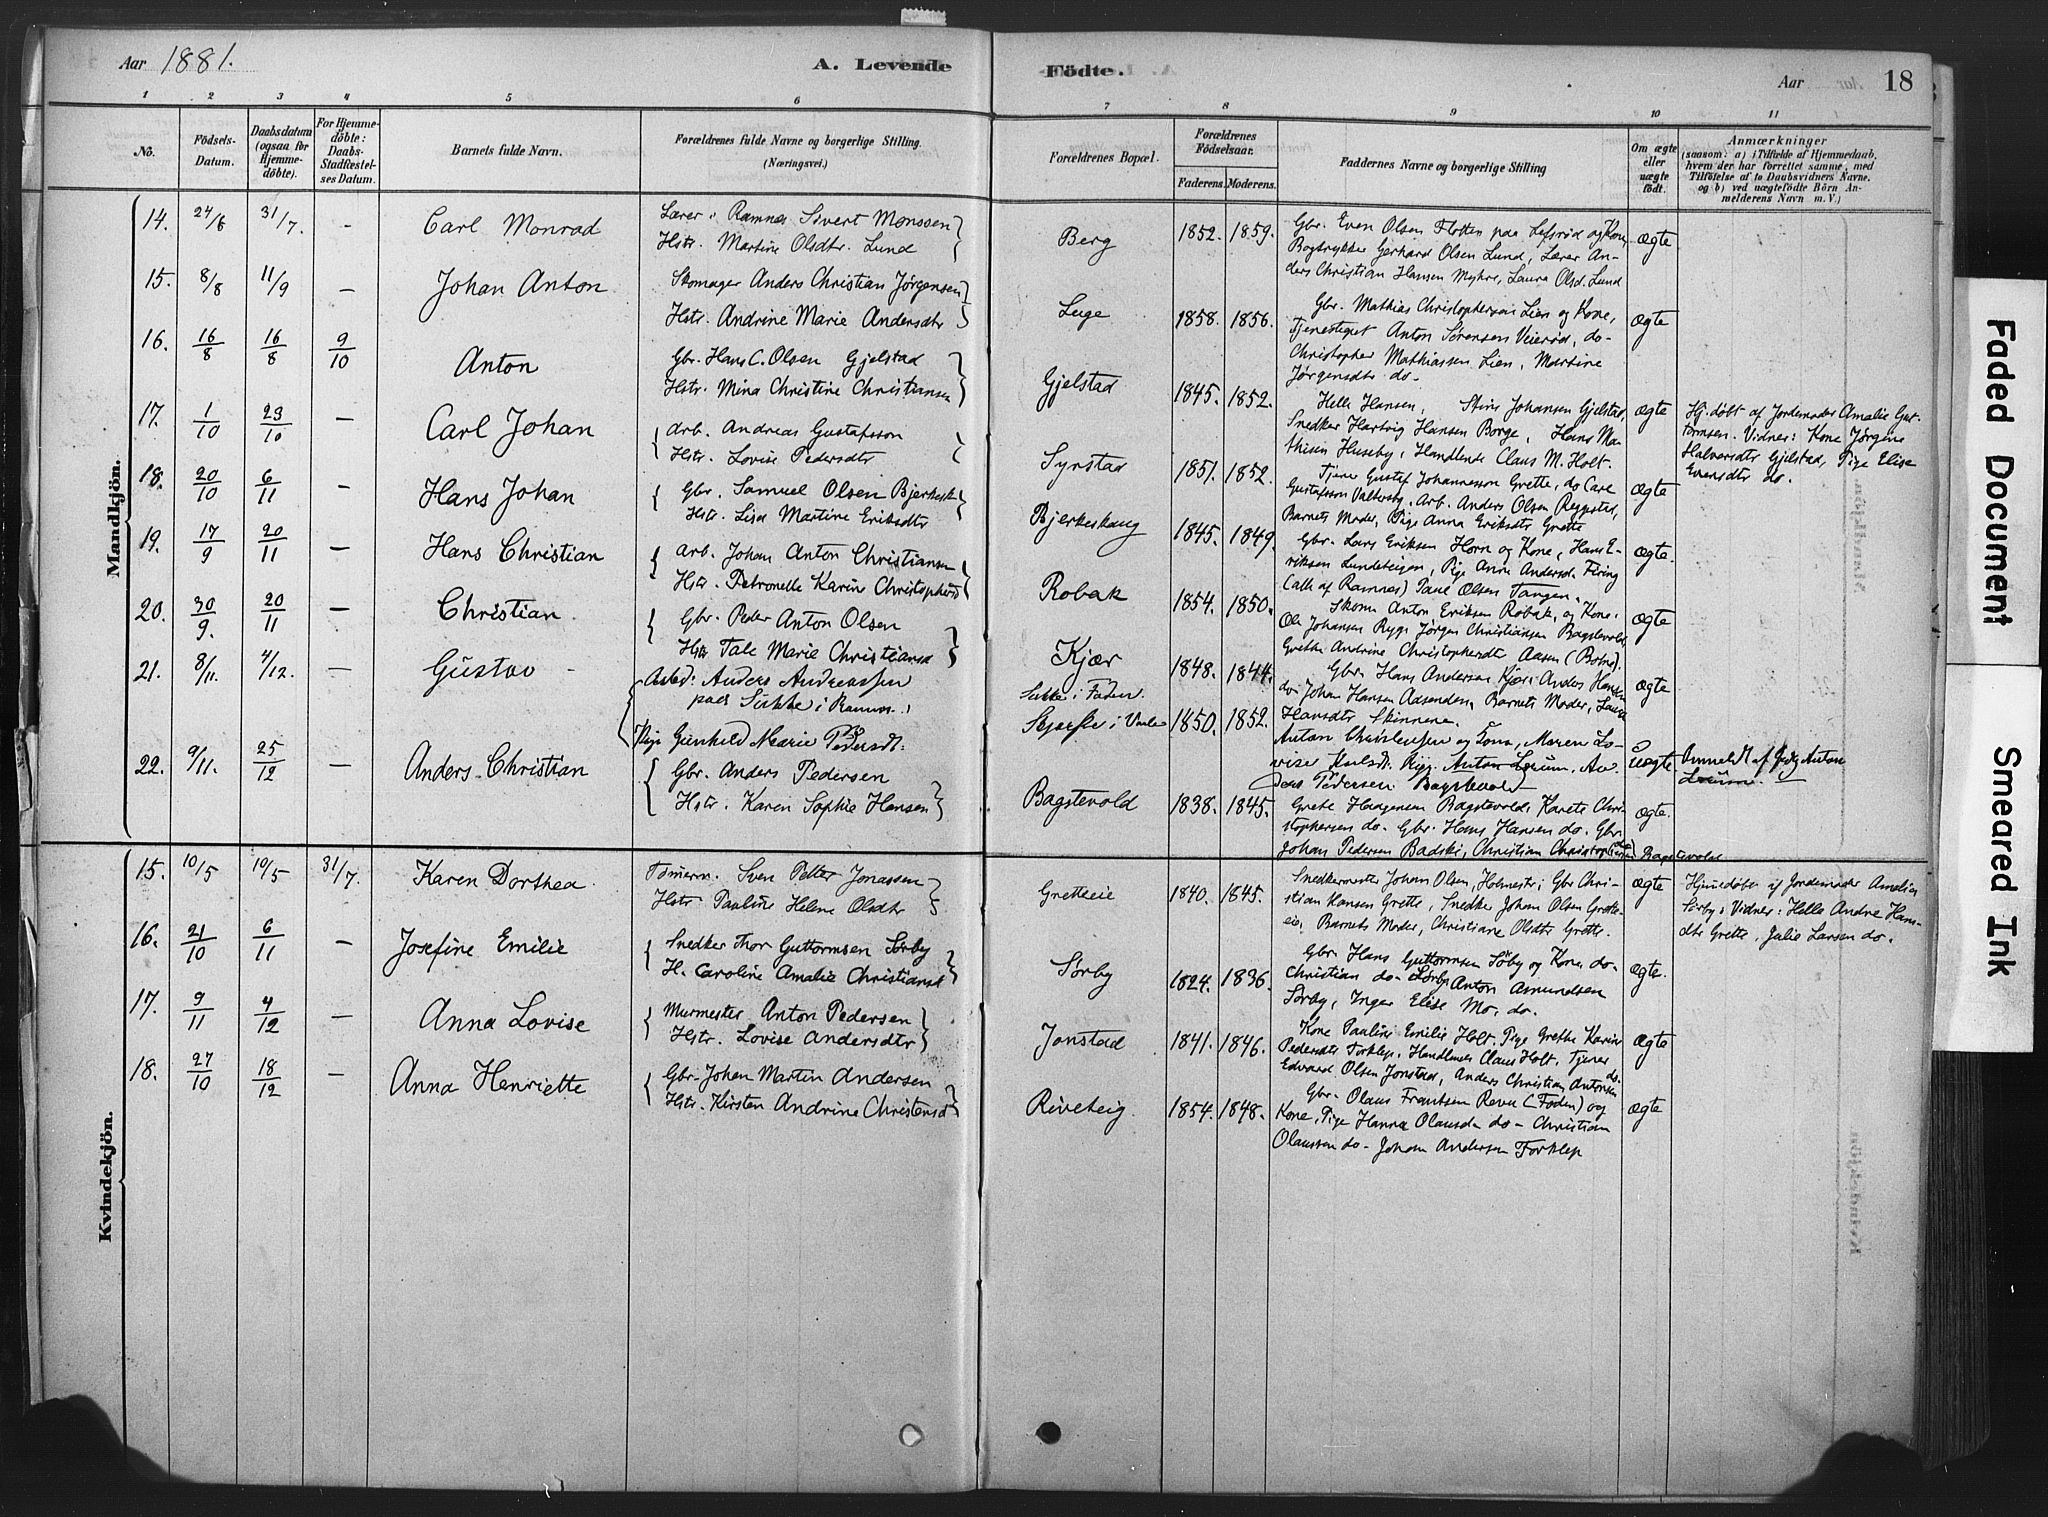 Aar 1881.
A. Levende Födte.
Aar
18
1 2 3 4 5 6 7 8 9 10 11
No.
Födsels-
Datum.
Daabsdatum
(ogsaa for
Hjemme-
døbte).
For Hjemme-
døbte:
Daabs-
Stadfæstel-
ses Datum.
Barnets fulde Navn.
Forældrenes fulde Navne og borgerlige Stilling.
(Næringsvei.)
Forældrenes Bopæl.
Forældrenes
Födselsaar.
Faderens. Moderens.
Faddernes Navne og borgerlige Stilling
Om ægte
eller
uægte
født.
Anmærkninger
(saasom: a) i Tilfælde af Hjemmedaab,
hvem der har forrettet samme, med
Tilföielse af to Daabsvidners Navne.
og b) ved uægtefödte Börn An-
melderens Navn m. V.)
Mandkjön.
14. 24/6 31/7. - Carl Monrad
Lærer i Ramnes Sivert Monssen
Hstr. Martine Olsdtr. Lund
Berg 1852. 1859.
Gbr. Even Olsen Floten paa Lefsrød og Kone
Bogtrykker Gerhard Olsen Lund, Lærer An-
ders Christian Hansen Myhre, Laura Olsd. Lund
Ægte
15. 8/8 11/9 - Johan Anton
Skomager Anders Christian Jørgensen
Hstr. Andrine Marie Andersdtr
Luge 1858. 1856.
Gbr. Mathias Christophersen Lien og Kone,
Tjenestegut Anton Sørensen Veierød, do-
Christopher Mathiassen Lien, Martine
Jørgensdtr do-
Ægte
16. 16/8 16/8 9/10 Anton
Gbr. Hans C. Olsen Gjelstad
Hstr. Mina Christine Christiansen
Gjelstad 1845. 1852.
Helle Hansen, Johansen Gjelstad,
Snedker Hartvig Hansen Borge, Hans Ma-
thisen Huseby, Handlende Claus M. Holt.
Ægte
Hj.døbt af Jordemoder Amalie Gut-
tormsen. Vidner: Kone Jørgine
Halvorsdtr Gjelstad, Pige Elise
Evensdtr do.
17. 1/10 23/10 - Carl Johan
Arb. Andreas Gustafsson
Hstr. Lovise Pedersdtr
Synstad 1851. 1852.
Tjener Gustaf Johannesson Grette, do Carl
Gustafsson Valberg, Arb. Anders Olsen Reggstad,
Barnets Moder, Pige Anna Eriksdtr Grette
Ægte
18. 20/10 6/11 - Hans Johan
Gbr. Samuel Olsen Bjerkesk
Hstr. Lisa Martine Eriksdtr
Bjerkeskaug 1845. 1849.
Gbr. Lars Eriksen Horn og Kone, Hans E-
riksen Lundeteigen, Pige Anne Andersd. Firing
(alle af Ramnes) Paul Olsen Tangen.
Ægte.
19. 17/9 20/11 - Hans Christian
Arb. Johan Anton Christiansen
Hstr. Petronelle Karine Christophersd
Robak 1854. 1850.
Skom Anton Eriksen Robak, og Kone.
Ole Johansen Rygg Jørgen Christiansen Bagstevold,
Grethe Andrine Christophersdt Aasen (Botne).
Ægte
20. 30/9. 20/11 - Christian
Gbr. Peder Anton Olsen
Hstr Tale Marie Christiansd
Kjær 1848. 1844.
Gbr. Hans Andersen Kjær, Anders Hansen
do- Johan Hansen Aasenden, Barnets Moder, Laura
Hansdtr Skinnene.
Ægte
21. 8/11. 4/12. - Gustav -
Arbd: Anders Andreassen
paa Sukke i Ramnes.
Pige Gunhild Marie Pedersdt:
Sukke i Foden
Skjerfle i Vaale 1850. 1852.
Anton Christensen og Kone, Maren Lo-
vise Karlsdt. Pige. Anton Leium, An-
ders Pedersen Bagstevold
Uægte.
Anmeldt af Gbr. Anton
Leium.
22. 9/11. 25/12 - Anders Christian
Gbr. Anders Pedersen
Hstr. Karen Sophie Hansen
Bagstevold 1838. 1845.
Grete Haagensen Bagstevold, Karete Chri-
stophersen do- Gbr. Hans Hansen do. Gbr.
Johan Pedersen Badski, Christian Christophersen Bagstevold
Ægte.
Kvindekjön.
15. 10/5 10/5 31/7. Karen Dorthea.
Tömerm. Sven Petter Jonassen
Hstr Pauline Helene Olsdtr
Gretteeie 1840. 1845.
Snedkermester Johan Olsen, Holmestr; Gbr Chri-
stian Hansen Grette, Snedker Johan Olsen Grette-
eie, Barnets Moder, Christiane Olsdtr Grette.
Ægte
Hjemedøbt af Jordemoder Amalie
Sørby; Vidner: Helle Andre Hans-
dtr Grette, Julie Larsen do.
16. 21/10 6/11 - Josefine Emilie
Snedker Thor Guttormsen Sørby
H. Caroline Amalie Christiansd
Sørby 1824. 1836.
Gbr. Hans Guttormsen Søby og Kone, do-
Christian do- Sørby Anton Amundsen
Sørby, Inger Elise Mo, do.
Ægte.
17. 9/11 4/12 - Anna Lovise
Murmester Anton Pedersen
Hstr. Lovise Andersdtr
Jonstad 1841. 1846.
Kone Pauline Emilie Holt, Pige Grethe Karine
Pedersdtr Forklep, Handlende Claus Holt, Tjener
Edvard Olsen Jonstad, Anders Christian Antonsen do.
Ægte
18. 27/10 18/12 - Anna Henriette
Gbr. Johan Martin Andersen
Hstr. Kirsten Andrine Christensd
Riveteig 1854. 1848.
Gbr. Olaus Frantsen Revu (Foden) og
Kone, Pige Hanna Olausdn do- Christian
Olaussen do- Johan Andersen Forklep
Ægte
Faded Document
Smeared Ink